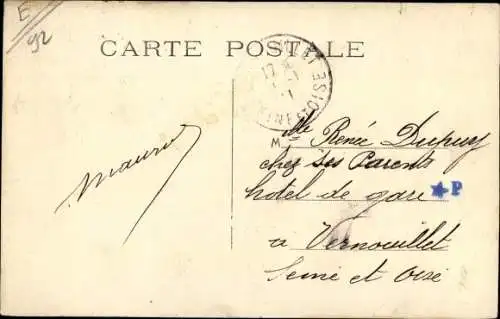 E
92
CARTE POSTALE
SEINE ET OISE
17
Maurice
Mlle Renée Dupuy
chez ses Parents
hotel de gare
★P
a Vernouillet
Seine et Oise